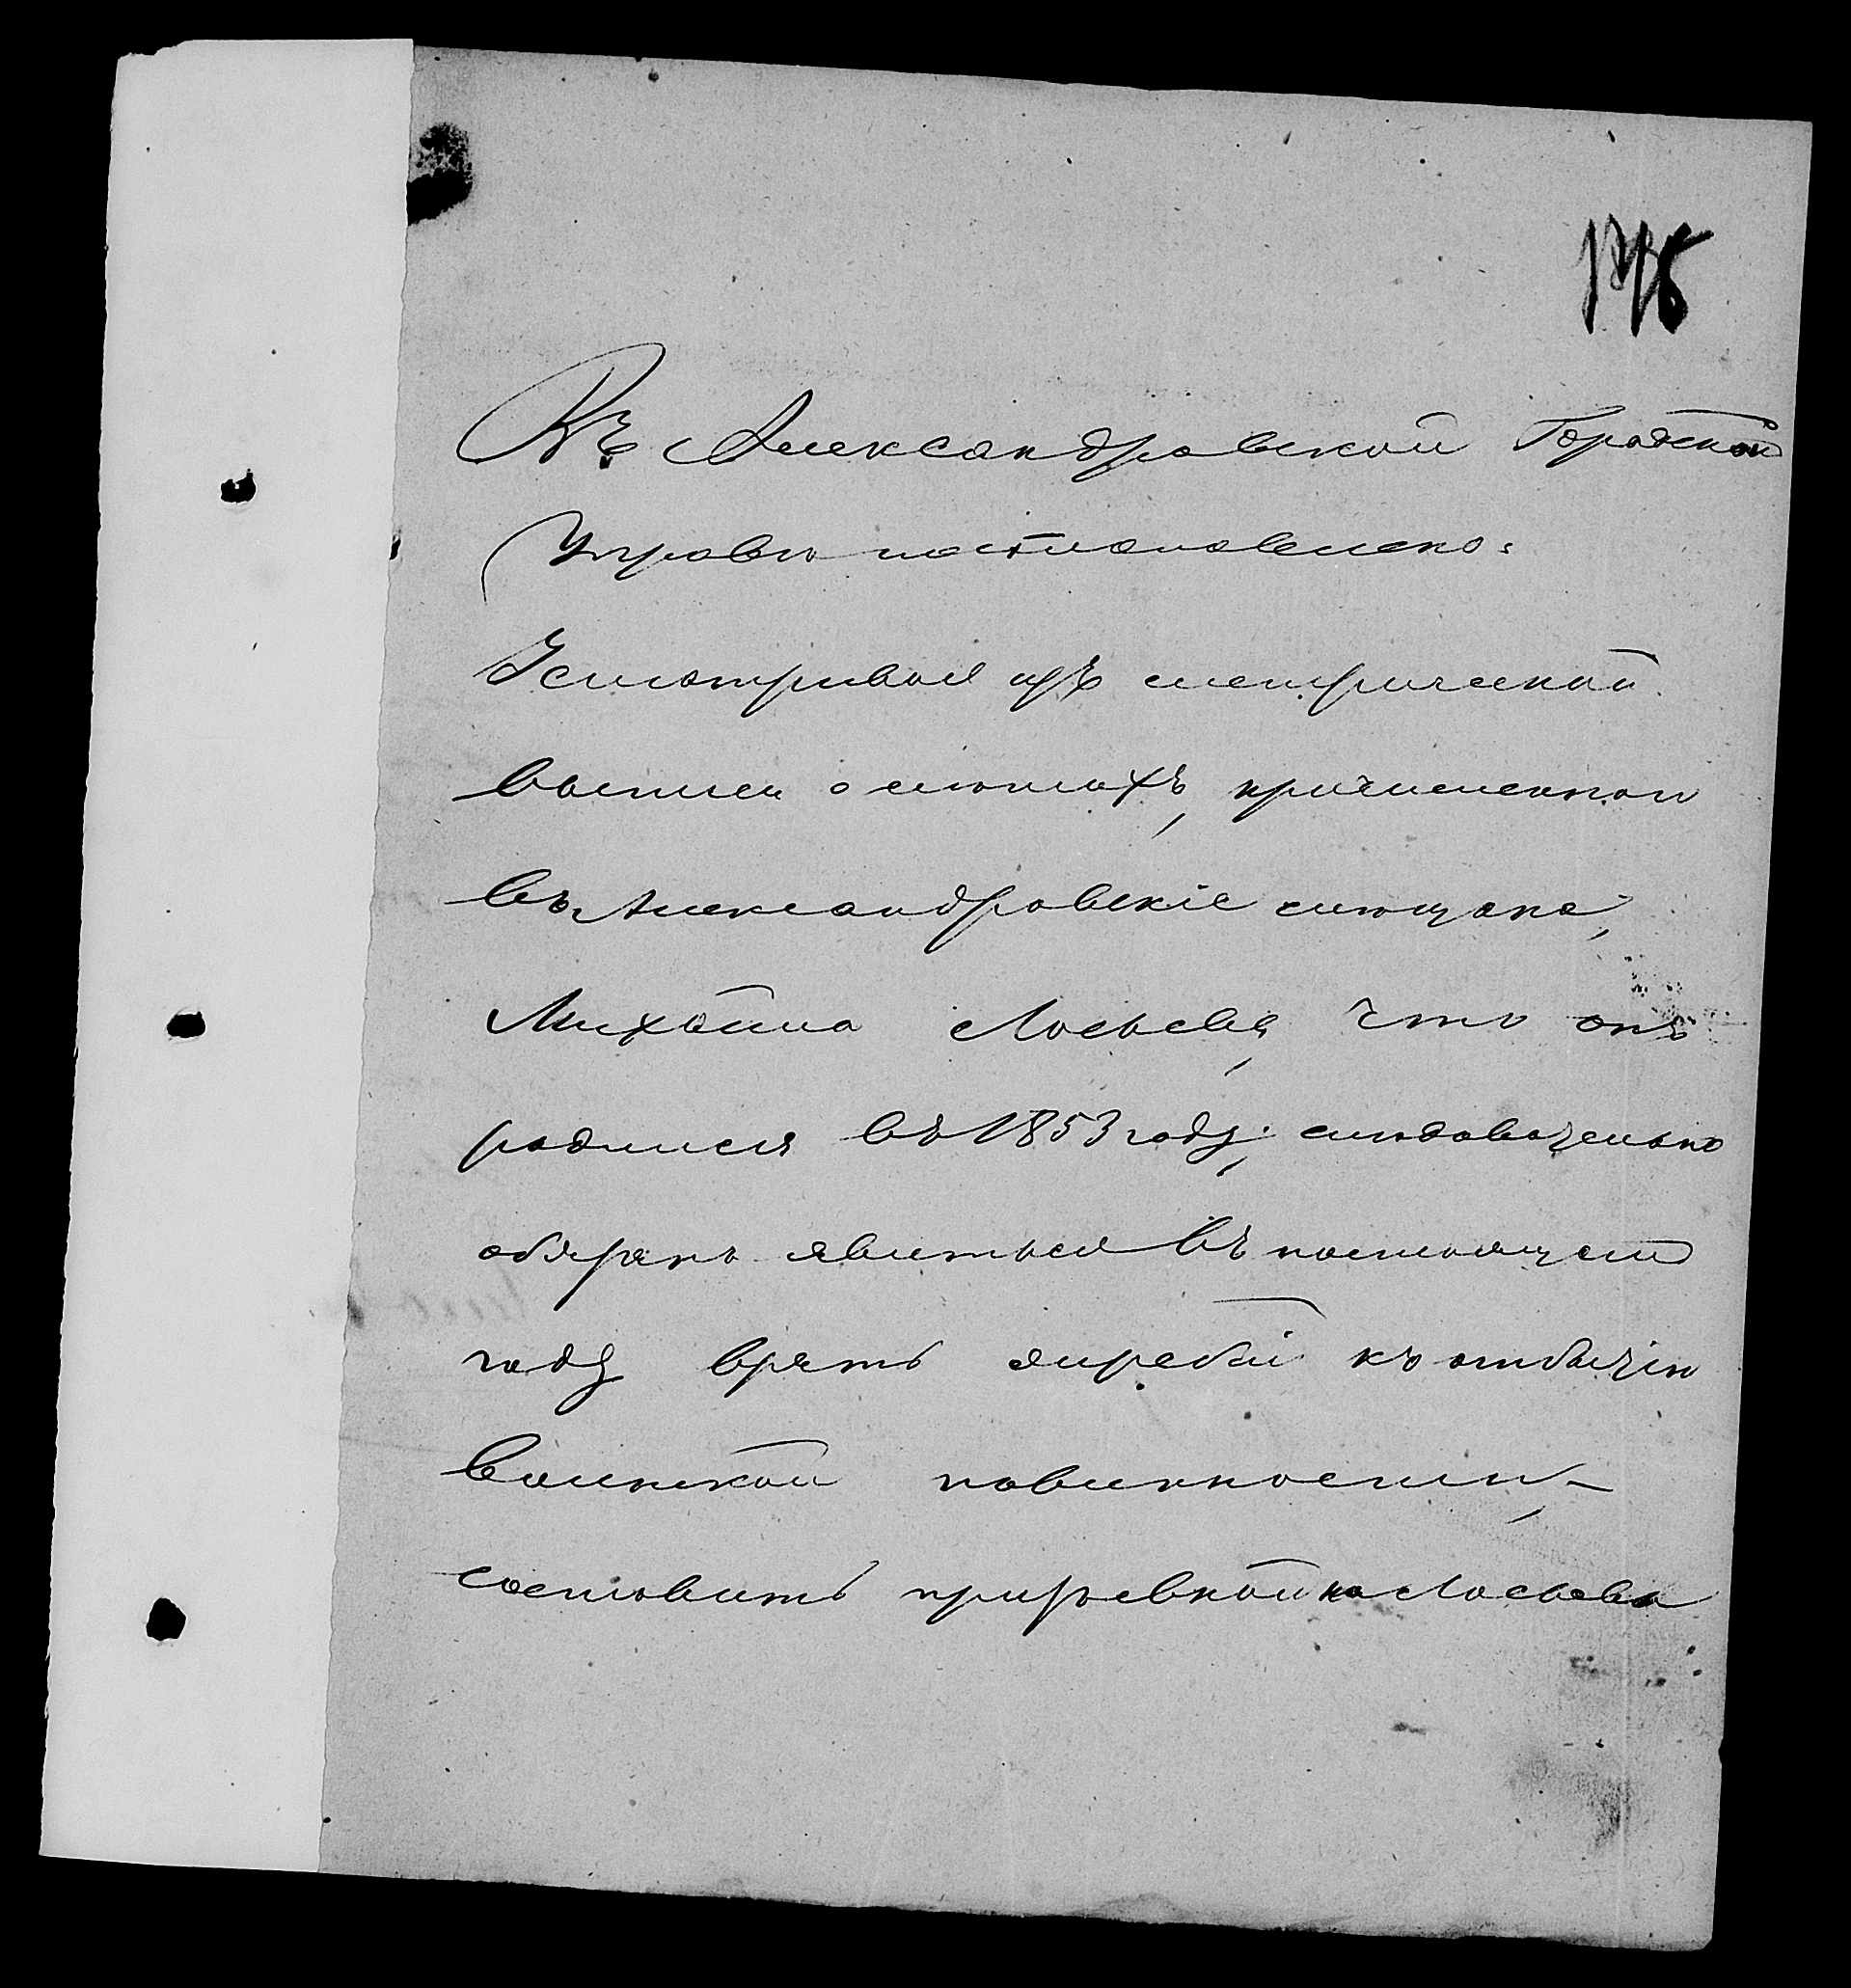 Въ Александровской Городской
Управѣ постановлено:
Усматривая изъ метрической
выписи о лѣтахъ, причисленнаго
въ Александровскіе мѣщане,
Михаила Лосьева, что онъ
родился въ 1853 году; слѣдовательно
обязанъ явиться въ настоящемъ
году взять жребій къ отбытію
воинской повинности, –
составить призывной на Лосьева